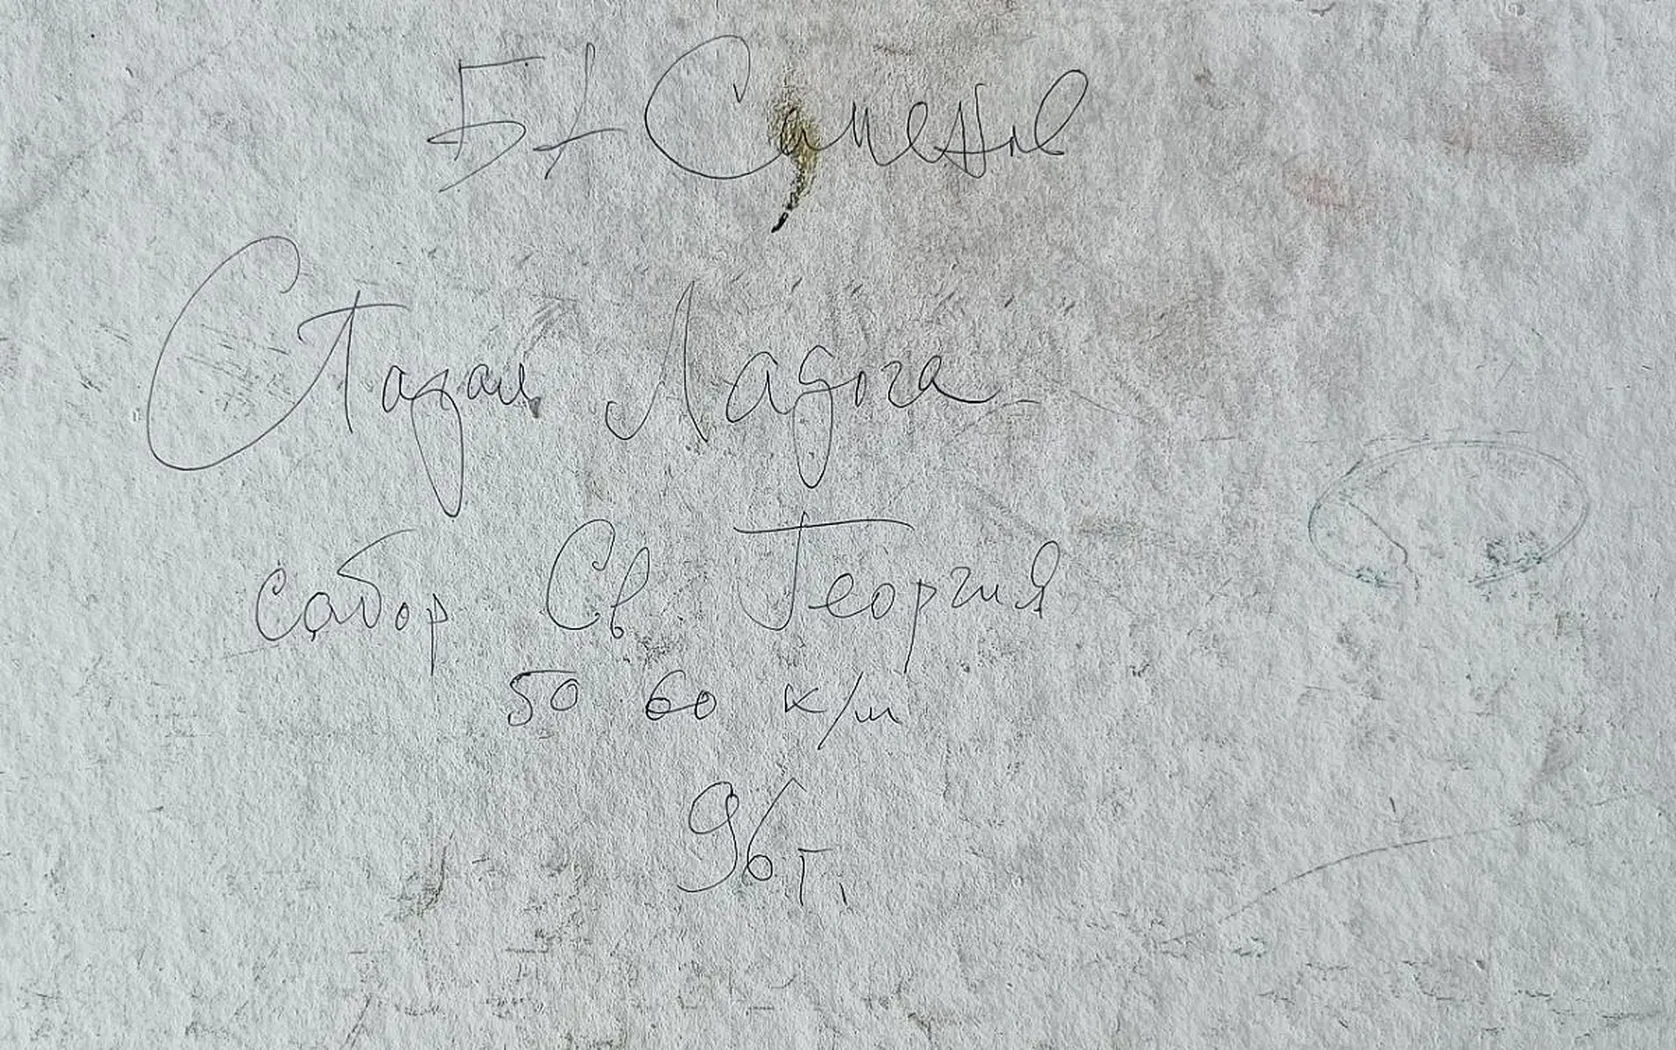 Старая Ладога
собор Св Георгия
50 60 к/м
96 г.